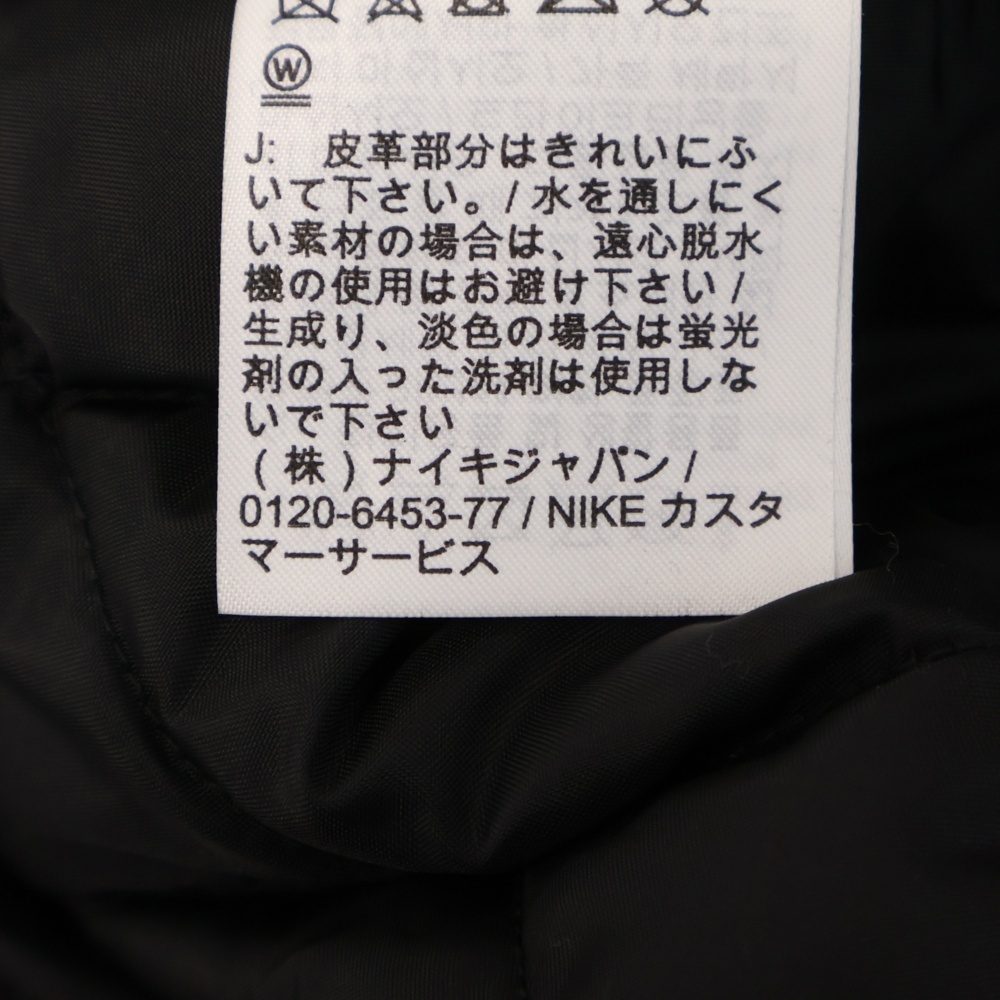 W
J: 皮革部分はきれいにふ
いて下さい。/ 水を通しにく
い素材の場合は、遠心脱水
機の使用はお避け下さい /
生成り、淡色の場合は蛍光
剤の入った洗剤は使用しな
いで下さい
(株)ナイキジャパン /
0120-6453-77 / NIKE カスタ
マーサービス